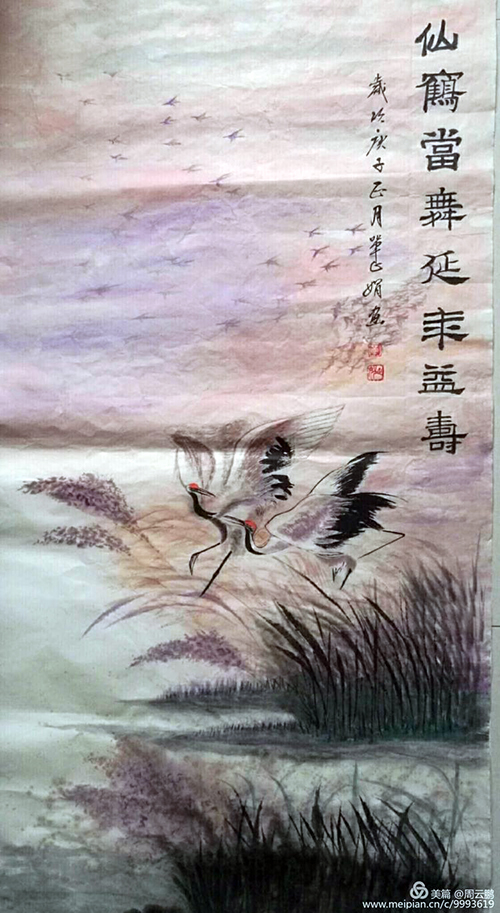 仙鶴當舞延年益壽
歲次庚子正月娟畫
美篇 @周云鹏
www.meipian.cn/c/9993619